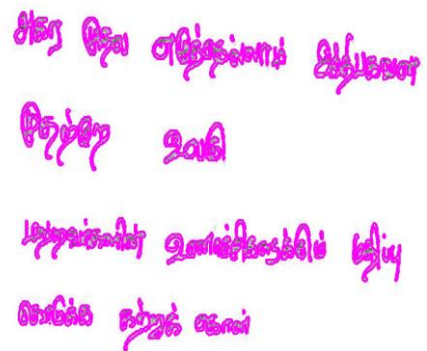 அகர முதல எழுத்தெல்லாம் ஆதிபகவன்
முதற்றே உலகு
மற்றவர்களின் உணர்ச்சிகளுக்கும் மதிப்பு
கொடுக்க கற்றுக் கொள்